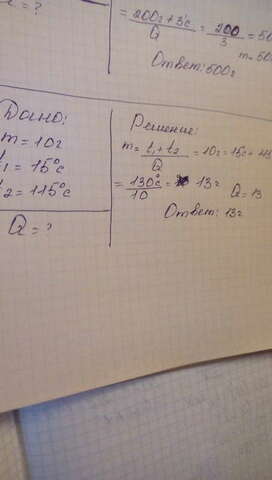 = ?
= 200г + 3°c / Q = 200 / 3 = 50
m = 50
Ответ: 500г
Дано:
m = 10г
t1 = 15°c
t2 = 115°c
Q = ?
Решение:
m = t1 + t2 / Q = 10г = 15c +
= 130°c / 10 = 13г Q = 13
Ответ: 13г